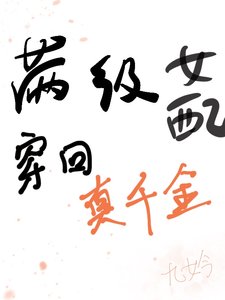 满级女配
穿回
真千金
九女吟